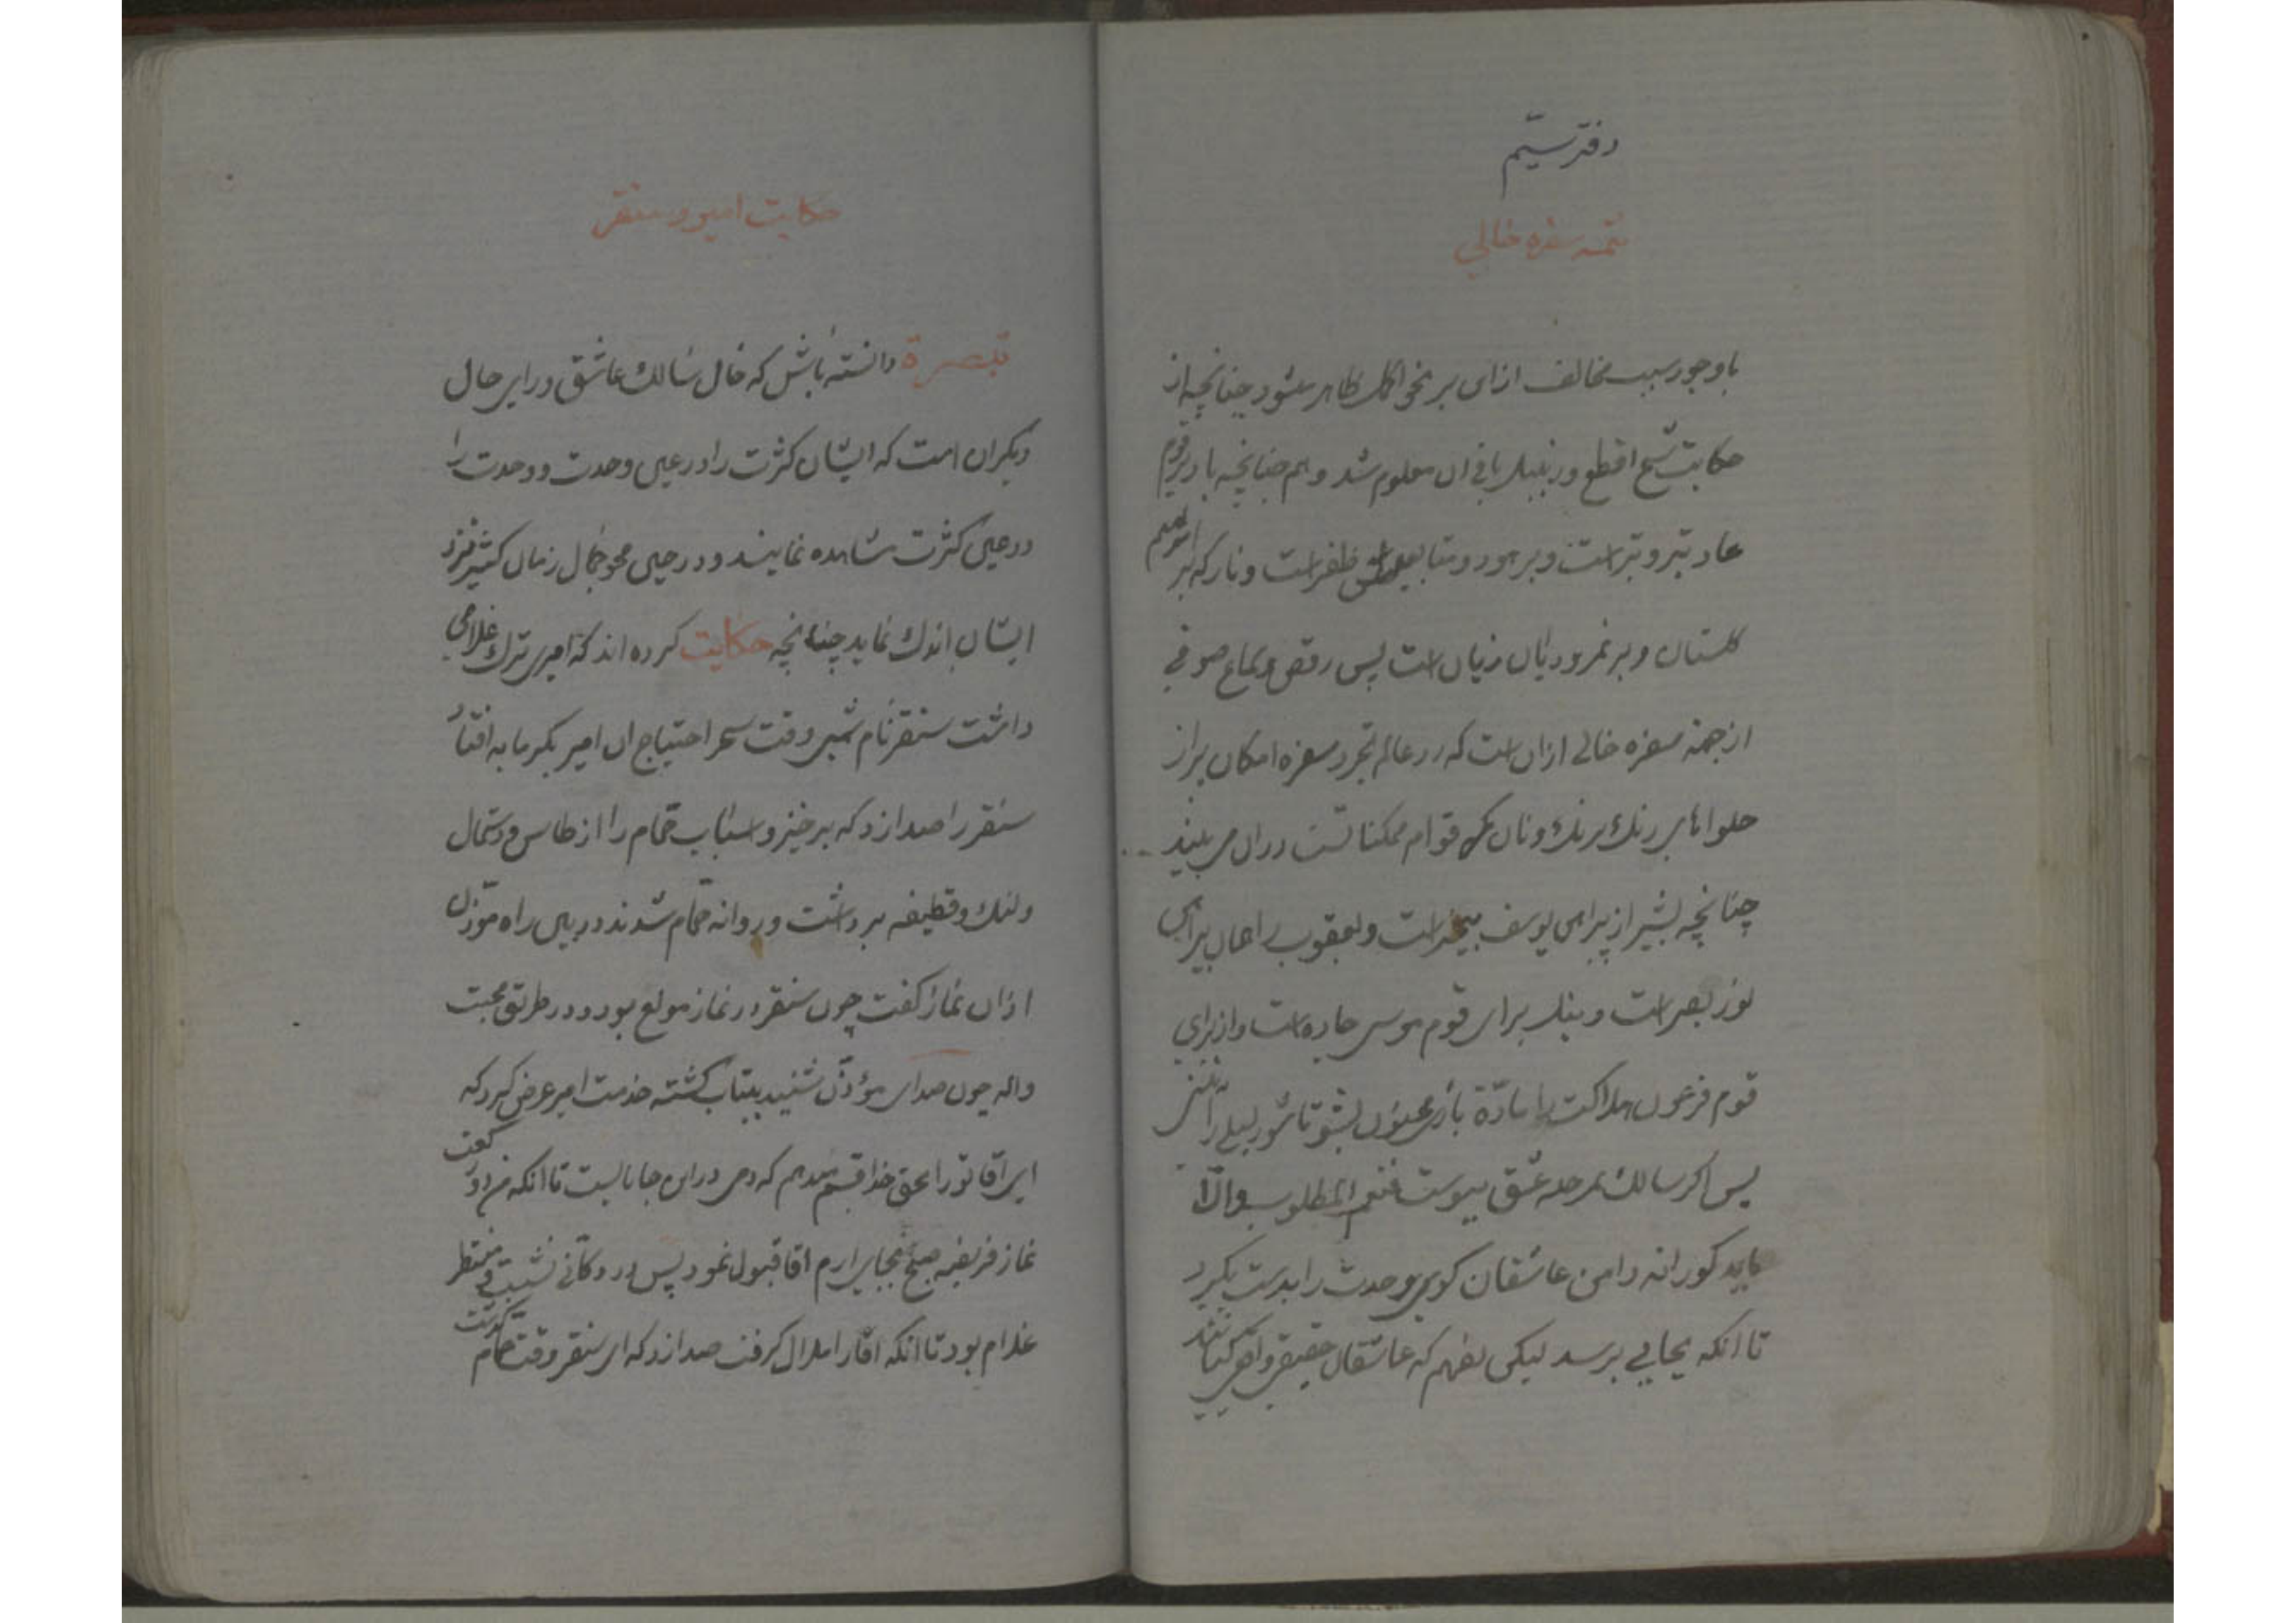 دفتر سیّم
تتمه سفره خالی
باوجود سبب مخالف ازای بر نحو اکمل ظاهر میشود چنانچه از
حکایت شیخ اقطع و زنبیل بافی ان معلوم شد و هم چنانچه باد بر قوم
عاد تیر و تبر است و بر هود و متابعینش ظفر است و نار که بر ابراهیم
کلستان و بر نمرودیان زیان است پس رقص و سماع صوفی
از جهة سفره خالی ازان است که در عالم تجرد سفره امکان پر از
حلواهای رنك برنك و نان نمك قوام ممکناتست دران می بیند
چنانچه بشیر از پیراهن یوسف بیخبر است و یعقوب را همان پیراهن
نور بصر است و نیل برای قوم موسی جاده است و از برای
قوم فرعون هلاکت را مادّة بازی مجنون بشو تا شور لیلی را
پس اکر سالك بمرحله عشق پیوست فنعم المطلوب والّا
باید کورانه دامن عاشقان کوی وحدت را بدست بکیرد
تا انکه بجایی برسد لیکن بفهم که عاشقان حقیقی
حکایت امیر و سنقر
تبصرة دانسته باش که حال سالك عاشق ورای حال
دیکران است که ایشان کثرت را در عین وحدت و وحدت را
در عین کثرت مشاهده نمایند و در حین محو جمال زمان کثیر نزد
ایشان اندك نماید چنانچه حکایت کرده اند که امیری ترك غلامی
داشت سنقر نام شبی وقت سحر احتیاج ان امیر بکرمابه افتاد
سنقر را صدا زد که برخیز و اسباب حمام را از طاس و دستمال
ولنك و قطیفه برداشت و روانه حمّام شدند در بین راه موذّن
اذان نماز کفت چون سنقر در نماز مولع بود و در طریق محبت
واله چون صدای مؤذّن شنید بیتاب کشته خدمت امیر عرض کرد که
ای اقا تو را بحق خدا قسم میدهم که دمی در این جا بایست تا انکه من دو رکعت
نماز فریضه صبح بجای ارم اقا قبول نمود پس در دکّانی نشست و منتظر
غلام بود تا انکه اقا را ملال کرفت صدا زد که ای سنقر وقت حمّام کذشت